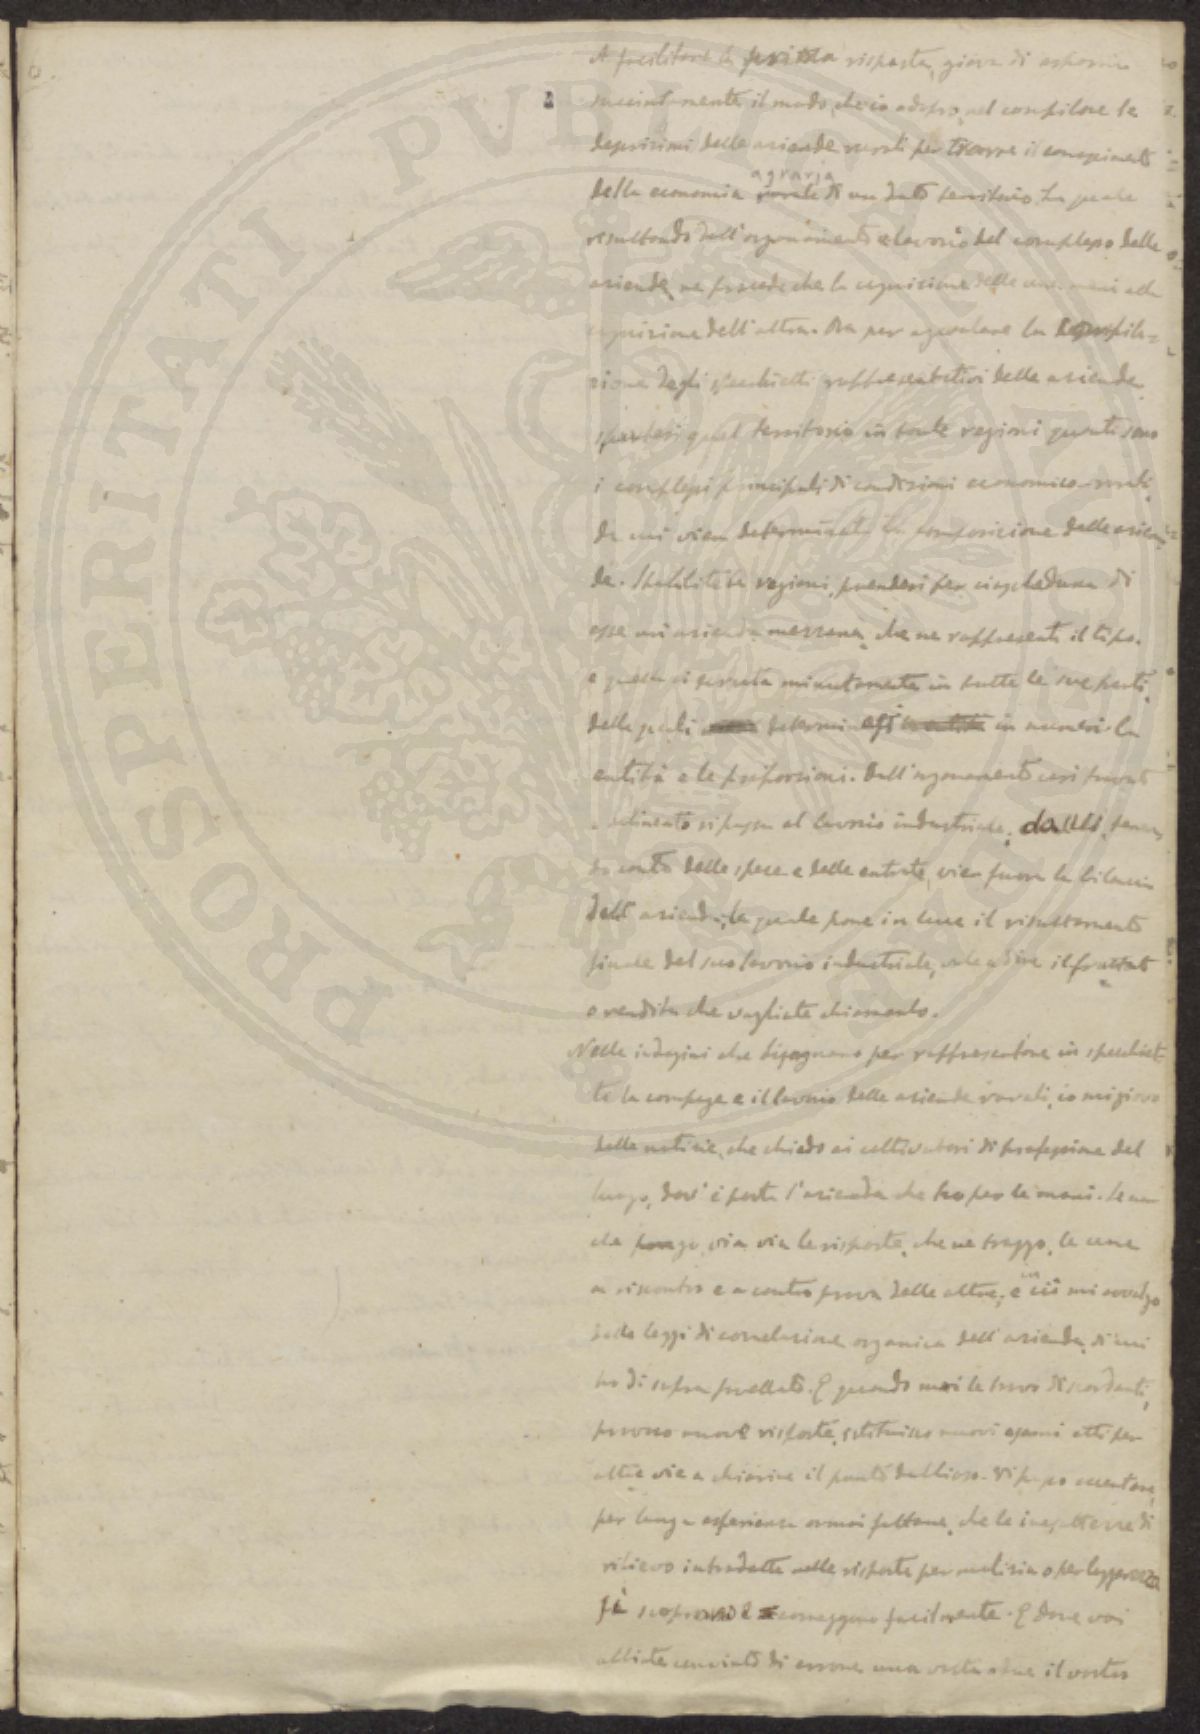 A facilitare la precisa risposta, giova di esporvi
succintamente il modo, che io adopro nel compilare le
descrizioni delle aziende rurali per ricavare il conoscimento
agraria
della economia rurale di un dato territorio. La quale
resultando dall'organamento e lavorio del complesso delle
aziende, ne procede che la cognizione delle une meni alla
cognizione dell'altra. Ora per agevolare la compila-
zione degli specchietti rappresentativi delle aziende
spartesi quel territorio in tante regioni quanti sono
i complessi principali di condizioni economico-rurali,
da cui vien determinata la composizione delle azien-
de. Stabilite le regioni, prendesi per ciascheduna di
esse un'azienda mezzana, che ne rappresenti il tipo.
e questa si scruta minutamente in tutte le sue parti,
delle quali determinasi in numeri la
entità e le proporzioni. Dall'organamento così trovato
si passa al lavorio industriale, dallo, tenen-
do conto delle spese e delle entrate, vien fuora la bilancia
dell'azienda, la quale pone in luce il risultamento
finale del suo lavorio industriale, vale a dire il fruttato
o rendita che vogliate chiamarlo.
Nelle indagini che bisognano per rappresentare in specchiet-
to la compage e il lavorio delle aziende rurali, io mi giovo
delle notizie, che chiedo ai coltivatori di professione del
luogo, dov'è posta l'azienda che ho per le mani. Se non
che pongo via via le risposte, che ne traggo, le une
a riscontro e a contro prova delle altre, e in ciò mi avvalgo
delle leggi di correlazione organica dell'azienda, di cui
ho di sopra favellato. E quando mai le trovo discordanti,
provoco nuove risposte, istituisco nuovi esami atti per
altre vie a chiarire il punto dubbioso. Vi posso accertare,
per lunga esperienza ormai fattane, che le inesattezze di
rilievo introdotte nelle risposte per malizia o per leggerezza
si scoprono e correggono facilmente. E dove voi
abbiate convinto di errore una volta o due il vostro